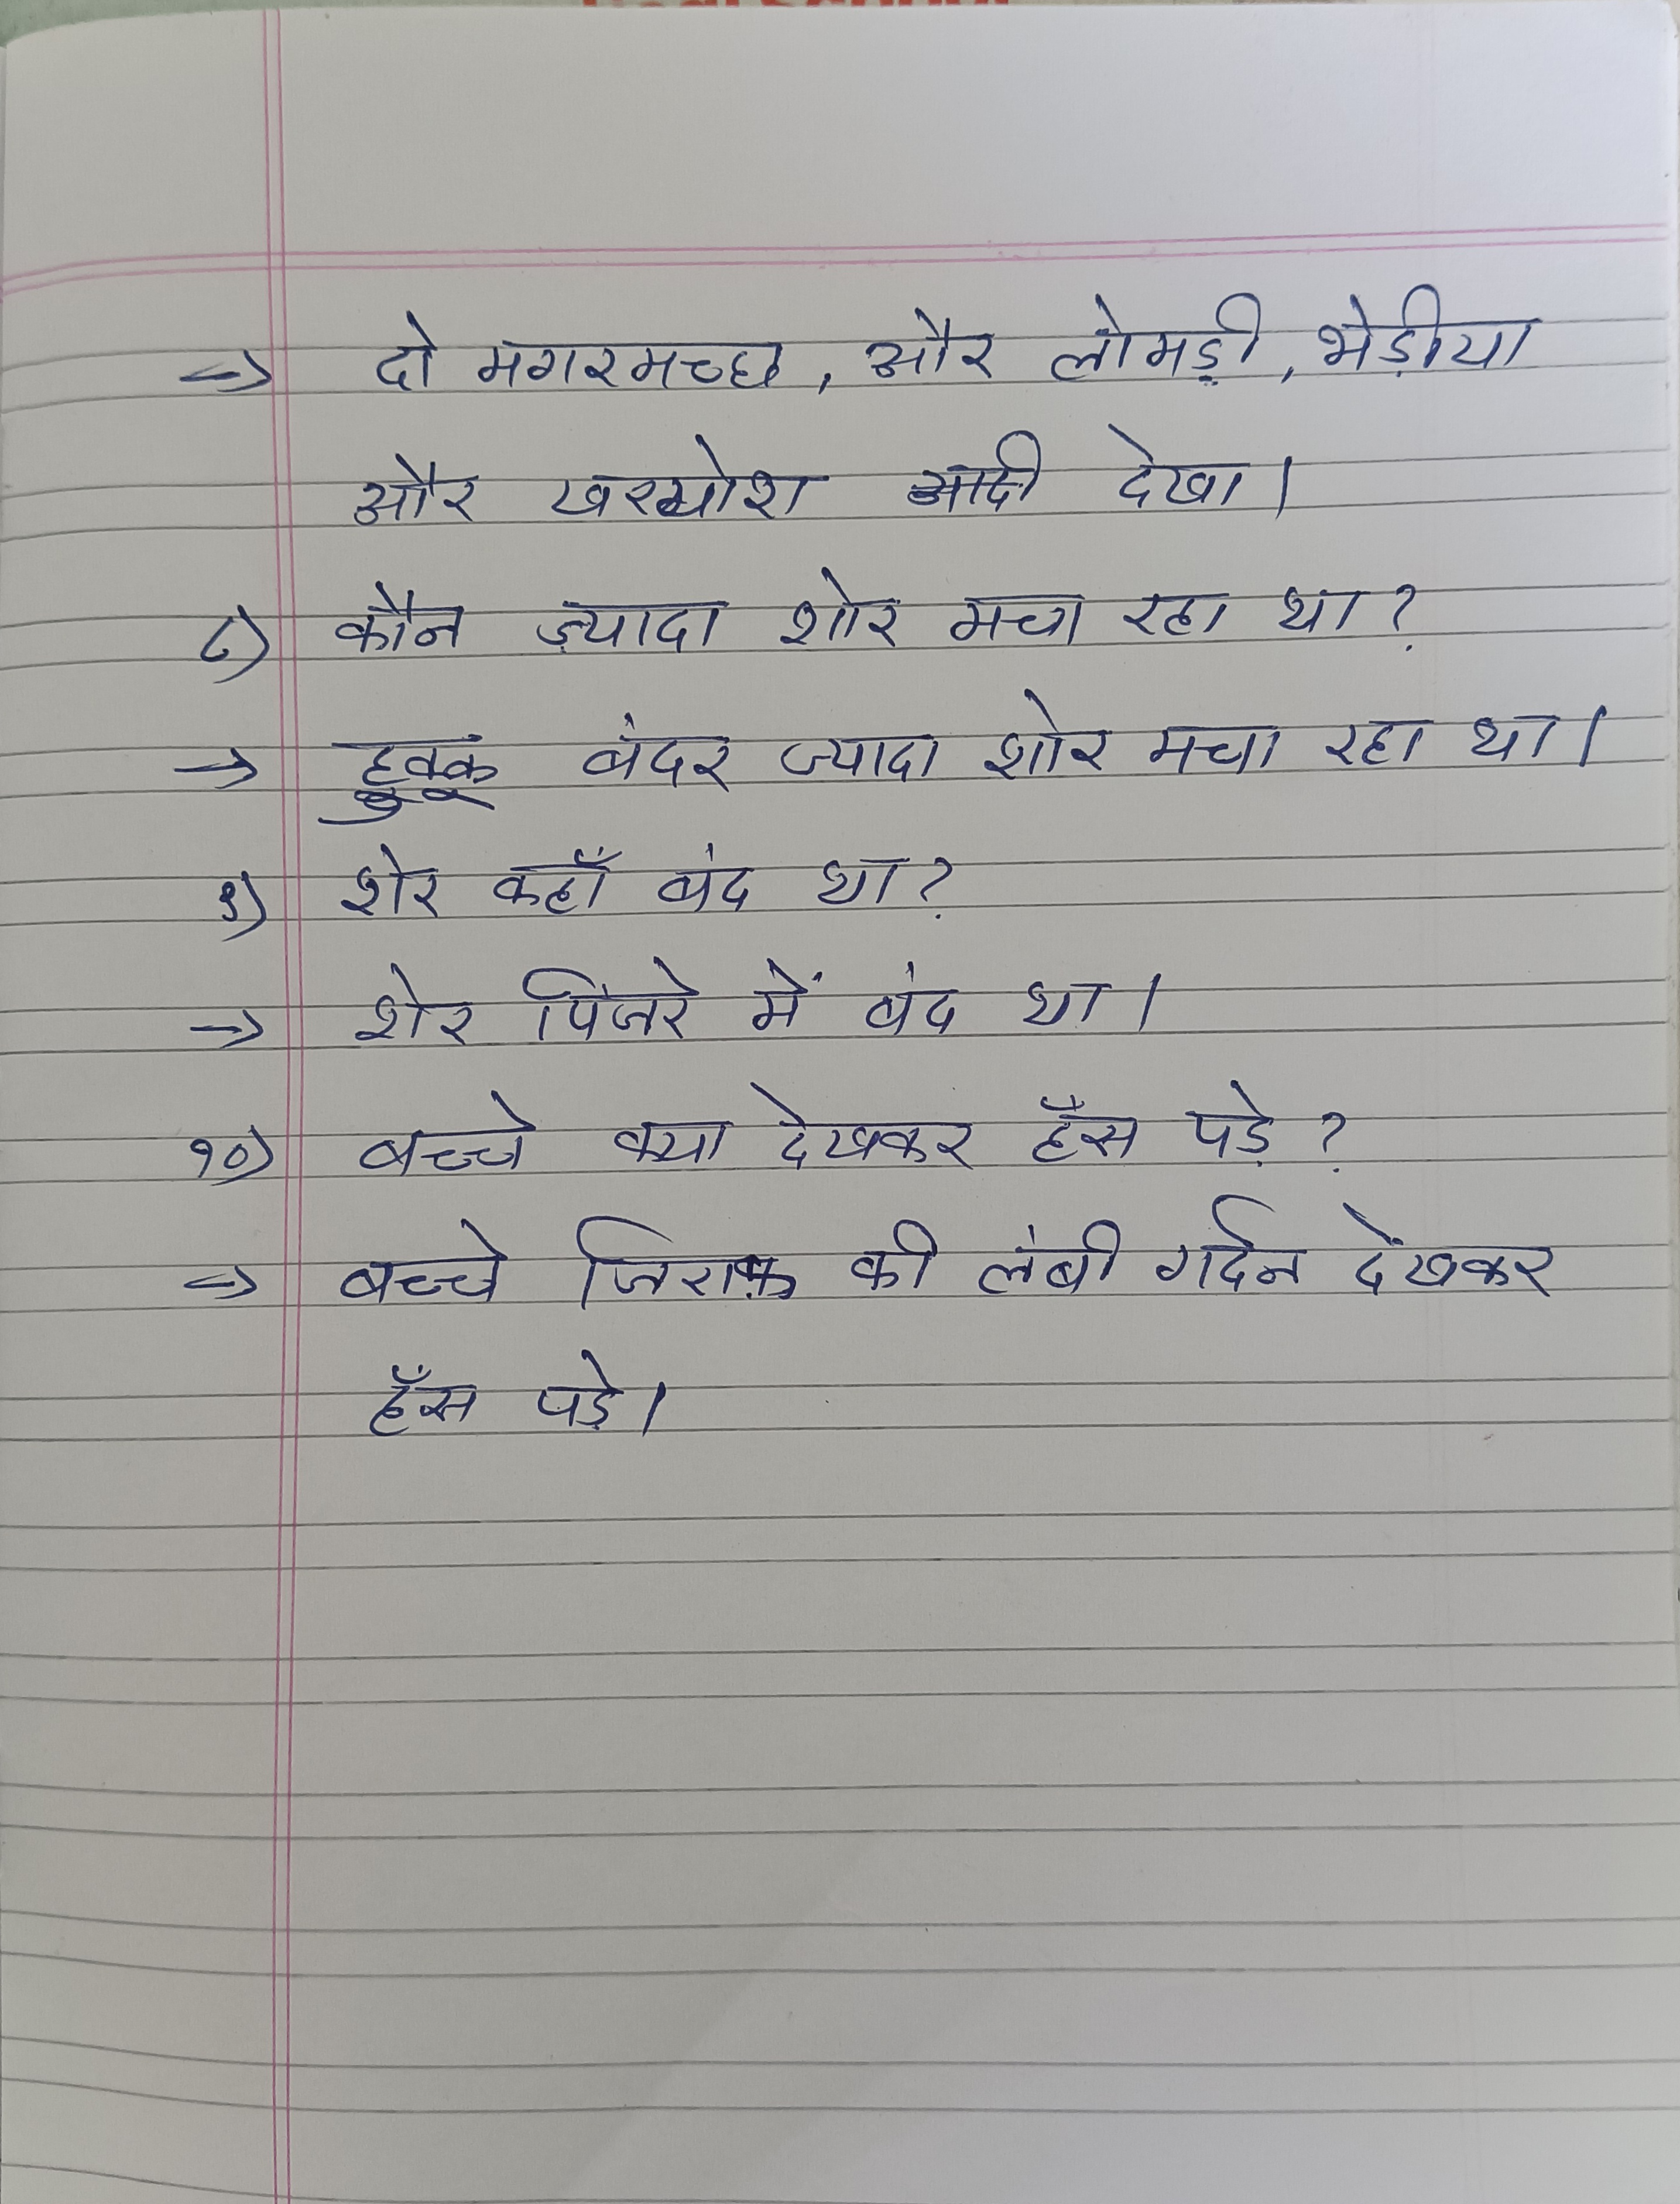 → दो मगरमच्छ, और लोमड़ी, भेड़ीया
और खरगोश आदी देखा।
८) कौन ज़्यादा शोर मचा रहा था?
→ हुक्कू बंदर ज्यादा शोर मचा रहा था।
९) शेर कहाँ बंद था?
→ शेर पिंजरे में बंद था।
१०) बच्चे क्या देखकर हँस पड़े?
→ बच्चे जिराफ़ की लंबी गर्दन देंखकर
हँस पड़े।